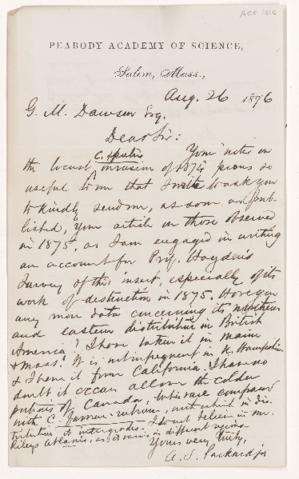 PEABODY ACADEMY OF SCIENCE,
Salem, Mass.,
Aug. 26 1876
G. M. Dawson Esq.
Dear Sir:
Your notes on
C. spretus
the locust invasion of 1874 prove so
useful to me that I write to ask you
to kindly send me, as soon as pub-
lished, your article on those observed
in 1875, as I am engaged in writing
an account for Prof. Hayden's
Survey of this insect, especially of its
work of destruction in 1875. Have you
any more data concerning its northern
and eastern distribution in British
America? I have taken it in Maine
& Mass. It is not infrequent in N. Hampshire
& I have it from California. I have no
doubt it occurs all over the colder
portions of Canada, where
with C. femur-rubrum,
it intergrades. I do not believe in
Riley's Atlanis, as
Yours very truly,
A. S. Packard Jr